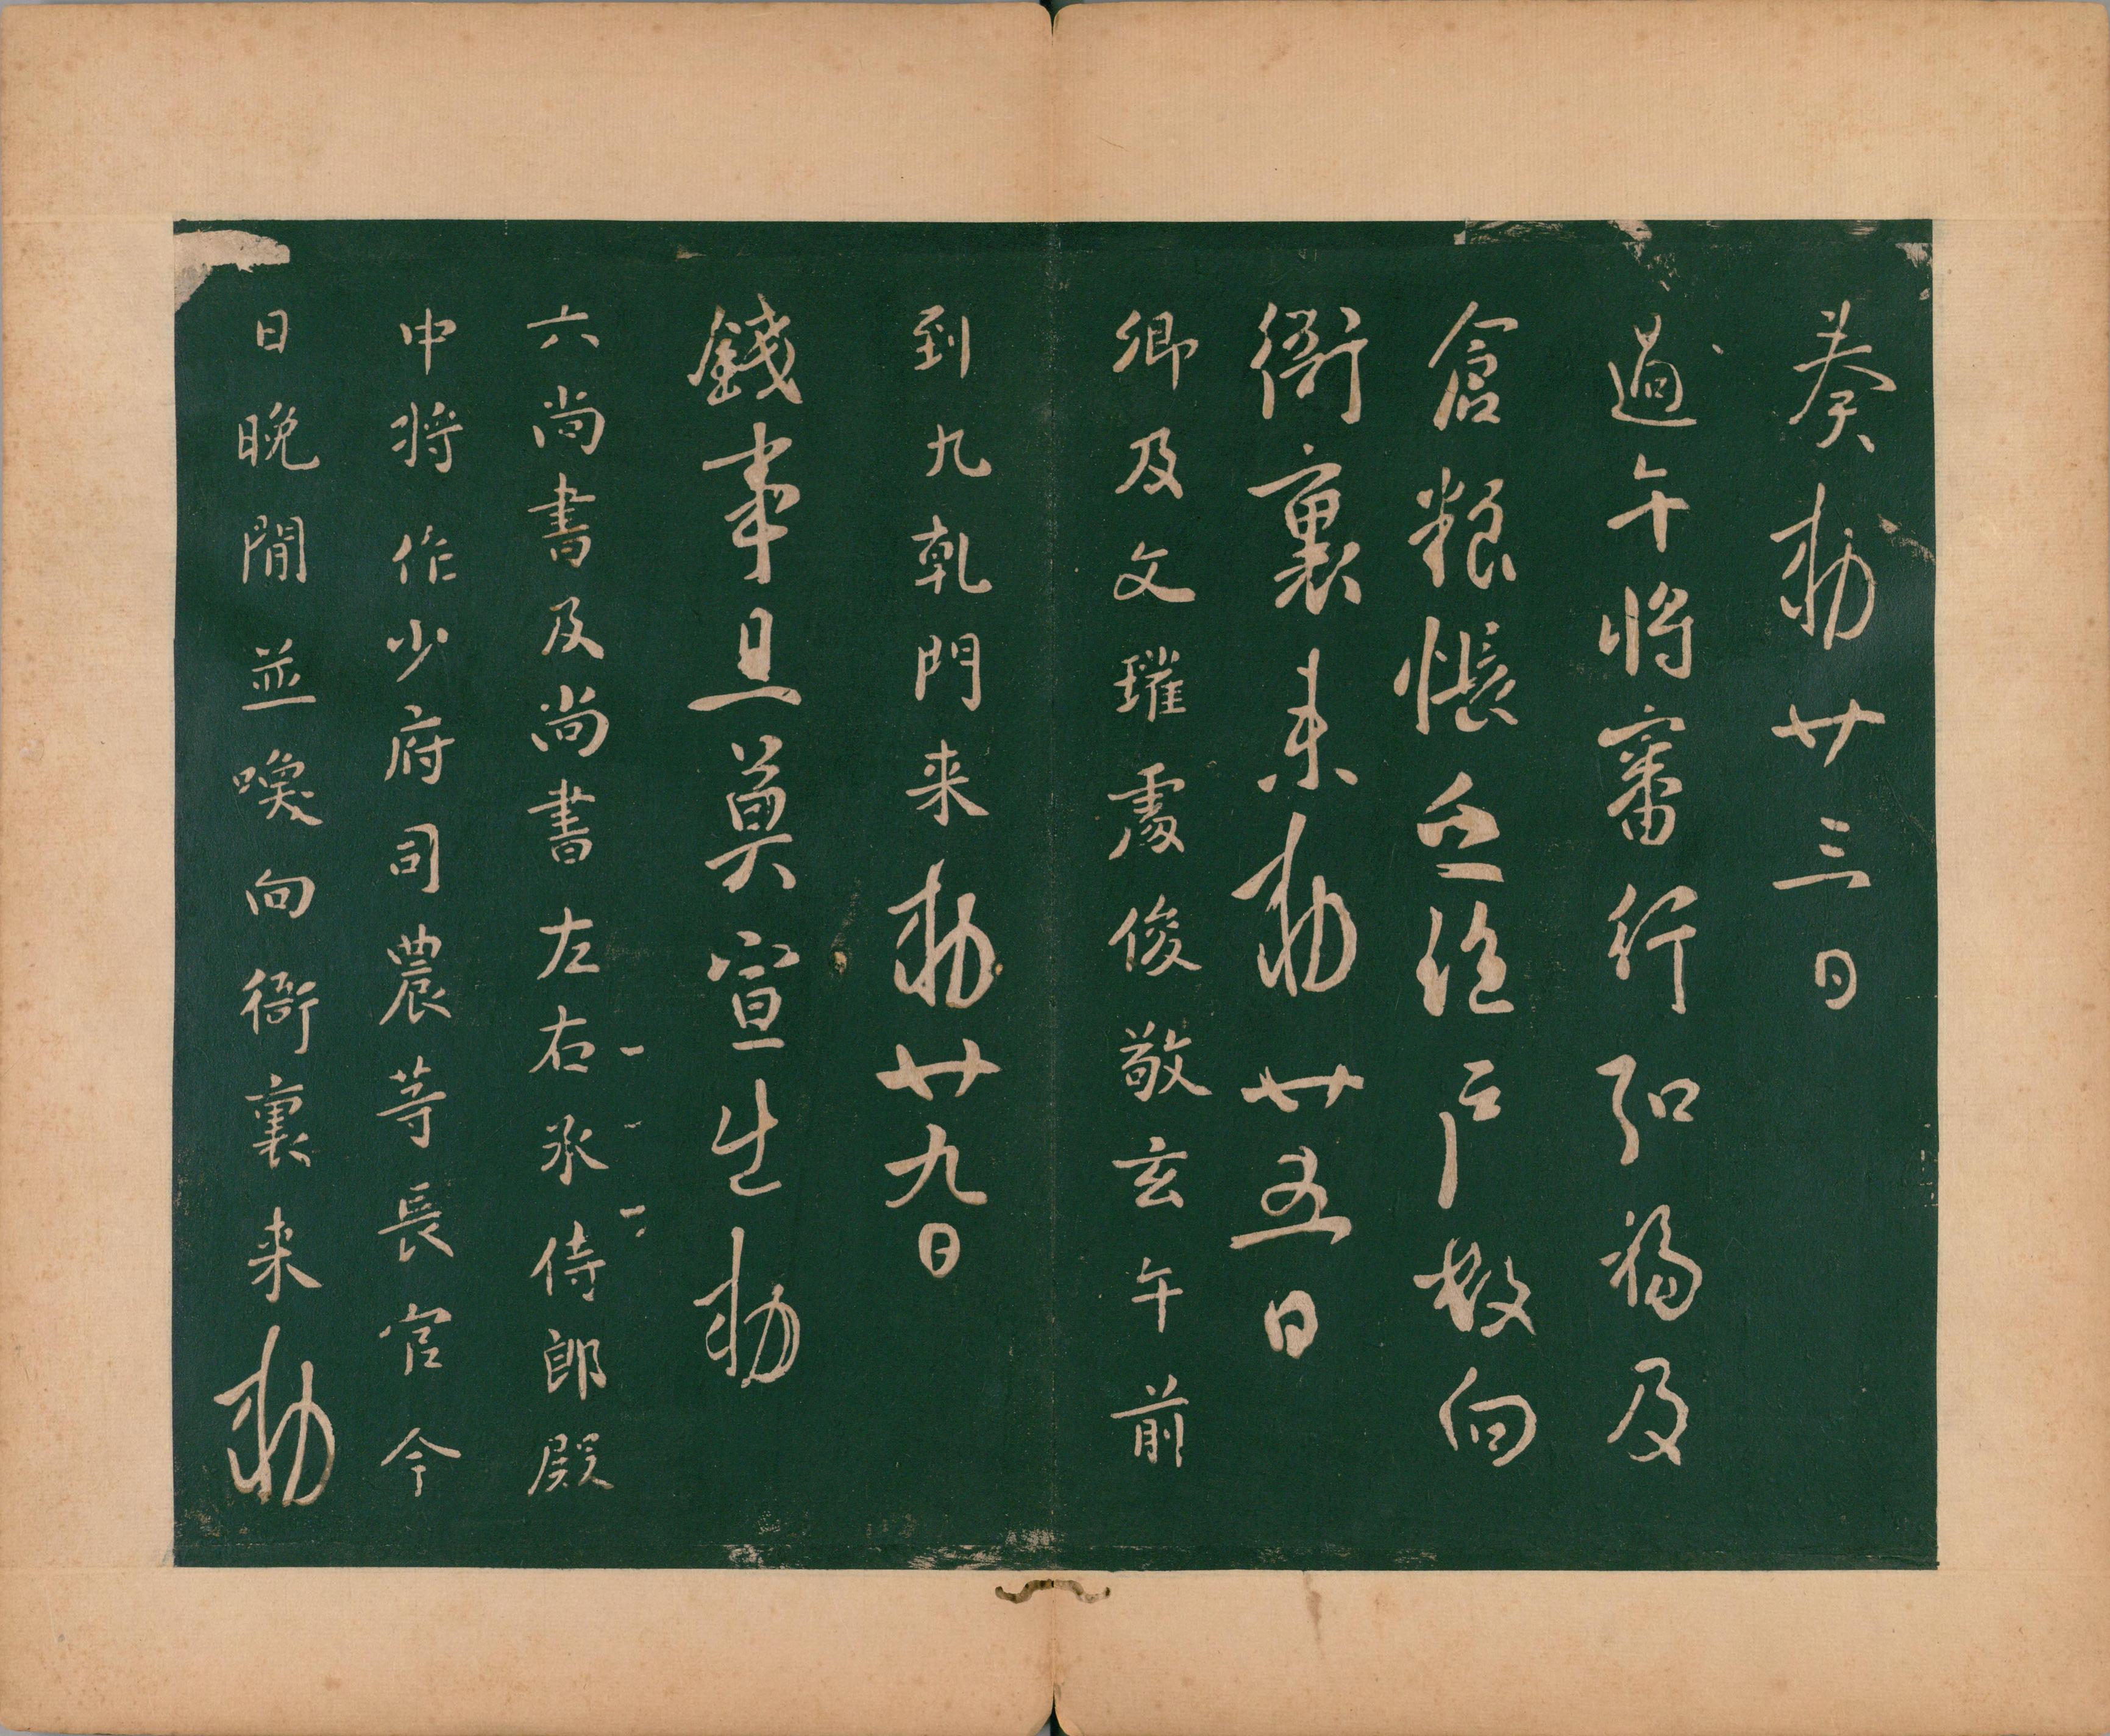 奏勅廿三日
過午將審行弘福及
倉粮帳正緫戶數向
衙裏来勅廿五日
卿及文瓘處俊敬玄午前
到九軋門来勅廿九日
錢事且莫宣出勅
六尚書及尚書左右丞侍郎殿
中将作少府司農等長官今
日晚閒並喚向衙裏来勅